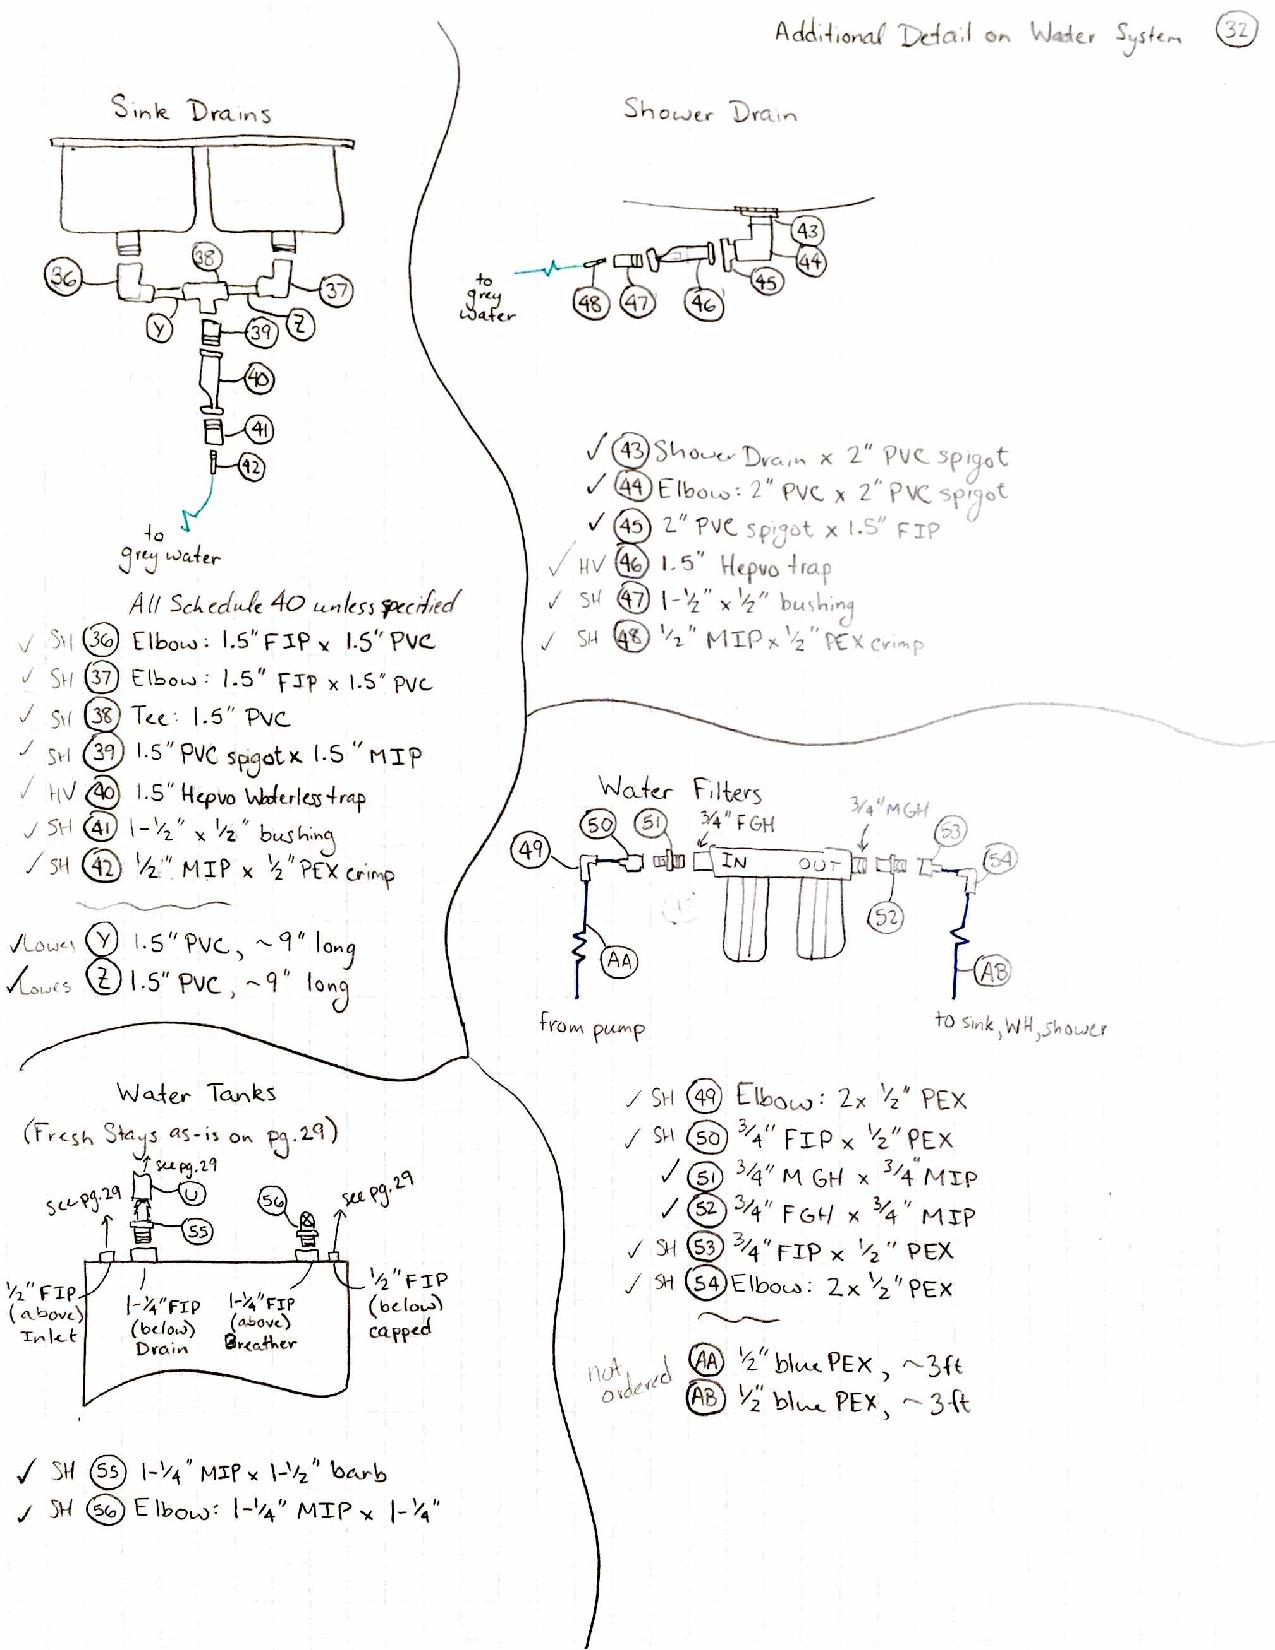 Additional Detail on Water System 32
Sink Drains
36
38
37
Y
39
Z
40
41
42
to
grey water
All Schedule 40 unless specified
✓ SH 36 Elbow: 1.5" FIP x 1.5" PVC
✓ SH 37 Elbow: 1.5" FIP x 1.5" PVC
✓ SH 38 Tee: 1.5" PVC
✓ SH 39 1.5" PVC spigot x 1.5" MIP
✓ HV 40 1.5" Hepvo Waterless trap
✓ SH 41 1-½" x ½" bushing
✓ SH 42 ½" MIP x ½" PEX crimp
✓ Lowes Y 1.5" PVC, ~9" long
✓ Lowes Z 1.5" PVC, ~9" long
Shower Drain
43
44
45
46
47
48
to
grey
water
✓ 43 Shower Drain x 2" PVC spigot
✓ 44 Elbow: 2" PVC x 2" PVC spigot
✓ 45 2" PVC spigot x 1.5" FIP
✓ HV 46 1.5" Hepvo trap
✓ SH 47 1-½" x ½" bushing
✓ SH 48 ½" MIP x ½" PEX crimp
Water Filters
49
50
51
¾" FGH
¾" MGH
53
54
IN OUT
52
AA
AB
from pump
to sink, WH, shower
✓ SH 49 Elbow: 2x ½" PEX
✓ SH 50 ¾" FIP x ½" PEX
✓ 51 ¾" MGH x ¾" MIP
✓ 52 ¾" FGH x ¾" MIP
✓ SH 53 ¾" FIP x ½" PEX
✓ SH 54 Elbow: 2x ½" PEX
not
ordered
AA ½" blue PEX, ~3ft
AB ½" blue PEX, ~3ft
Water Tanks
(Fresh Stays as-is on pg.29)
see pg.29
see pg.29
U
55
56
see pg.29
½" FIP
(above)
Inlet
1-¼" FIP
(below)
Drain
1-¼" FIP
(above)
Breather
½" FIP
(below)
capped
✓ SH 55 1-¼" MIP x 1-½" barb
✓ SH 56 Elbow: 1-¼" MIP x 1-¼"